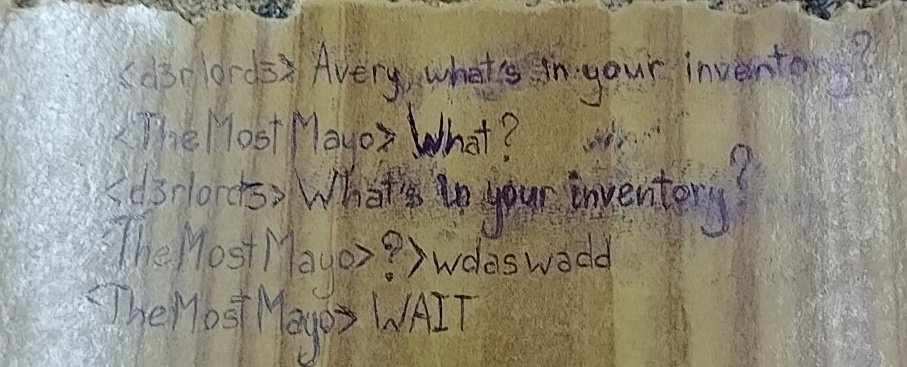 <d3rlord3> Avery, what's in your inventory?
<TheMostMayo> What?
<d3rlord3> What's in your inventory?
TheMostMayo>?>wdaswadd
<TheMostMayo> WAIT